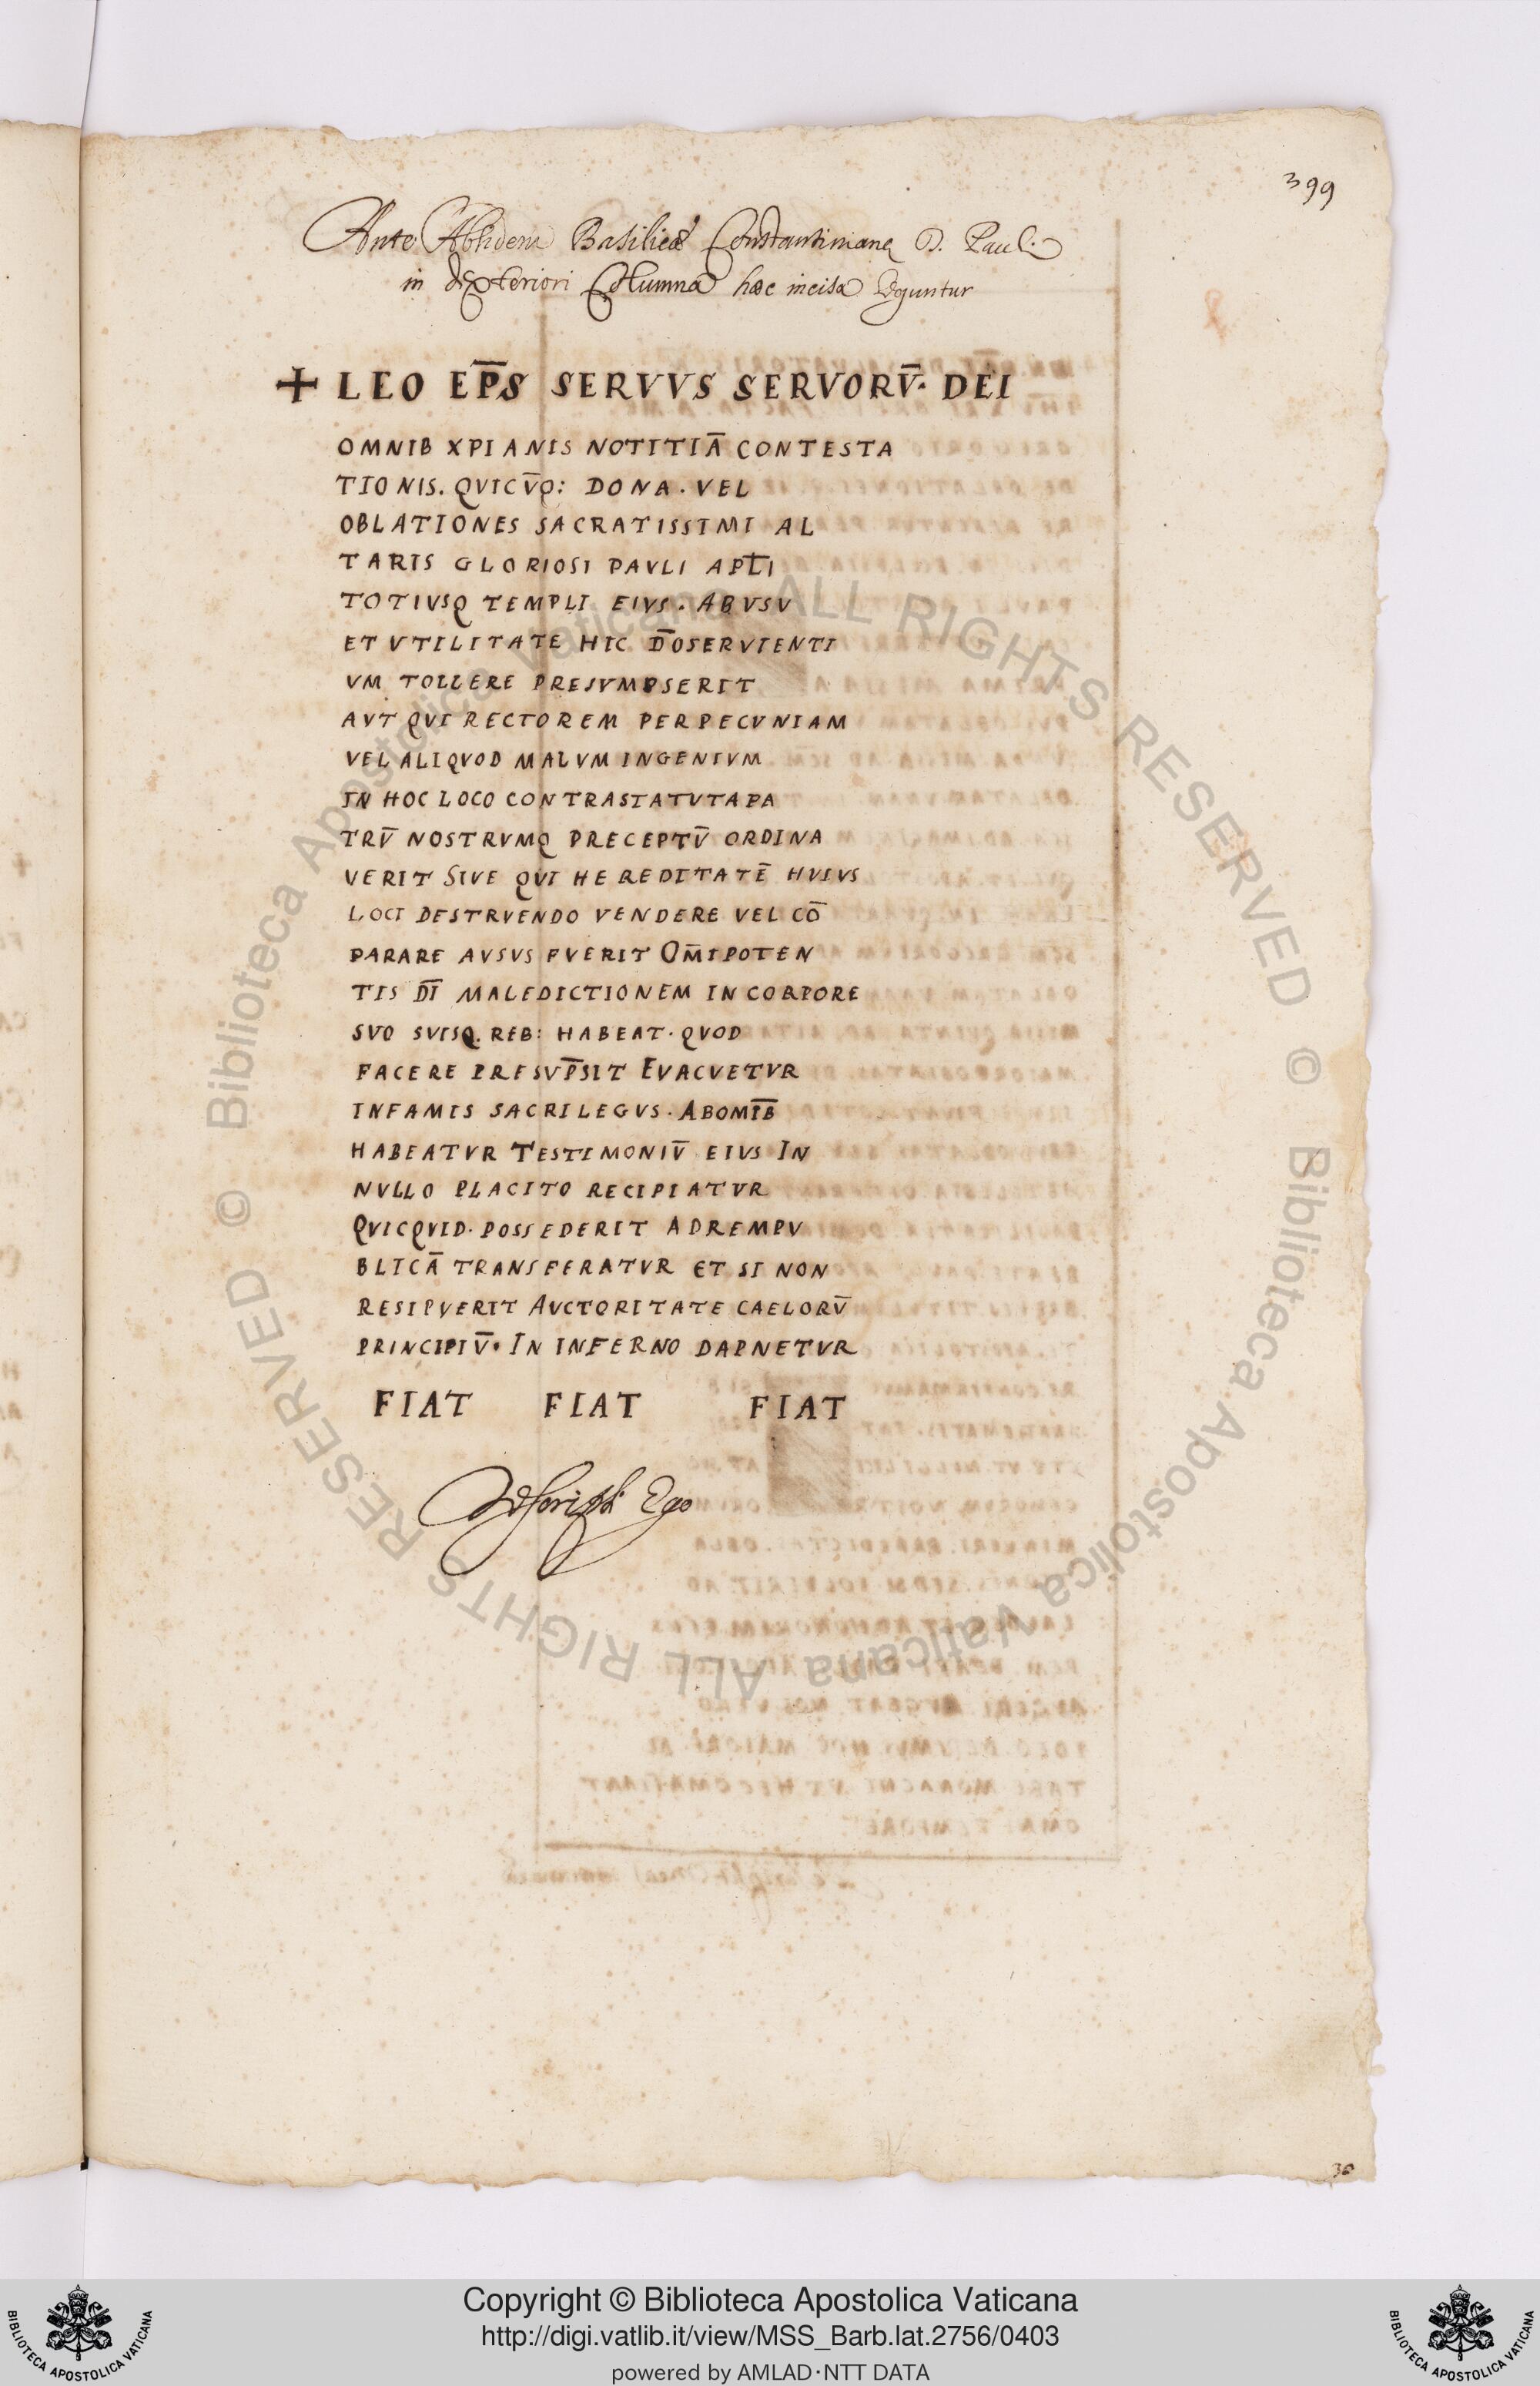 399
Ante Absidem Basilicæ Constantinianę D. Pauli
in dexteriori Columna hæc incisa leguntur
+ LEO EP̅S SERVVS SERVORV̅· DEI
OMNIB XPIANIS NOTITIA̅ CONTESTA
TIONIS. QVICV̅Q: DONA · VEL
OBLATIONES SACRATISSIMI AL
TARIS GLORIOSI PAVLI APL̅I
TOTIVSQ TEMPLI EIVS · ABVSV
ET VTILITATE HIC D̅OSERVIENTI
VM TOLLERE PRESVMPSERIT
AVT QVI RECTOREM PERPECVNIAM
VEL ALIQVOD MALVM INGENIVM
IN HOC LOCO CONTRASTATVTAPA
TRV̅ NOSTRVMQ PRECEPTV̅ ORDINA
VERIT SIVE QVI HEREDITATE̅ HVIVS
LOCI DESTRVENDO VENDERE VEL CO̅
PARARE AVSVS FVERIT OM̅IPOTEN
TIS D̅I MALEDICTIONEM IN CORPORE
SVO SVISQ. REB: HABEAT · QVOD
FACERE PRESVP̅SIT EVACVETVR
INFAMIS SACRILEGVS · ABOMI̅B
HABEATVR TESTIMONIV̅ EIVS IN
NVLLO PLACITO RECIPIATVR
QVICQVID · POSSEDERIT ADREMPV
BLICA̅ TRANSFERATVR ET SI NON
RESIPVERIT AVCTORITATE CAELORV̅
PRINCIPIV̅ · IN INFERNO DAPNETVR
FIAT FIAT FIAT
Descripsi Ego
30
© Biblioteca Apostolica Vaticana ALL RIGHTS RESERVED © Biblioteca Apostolica Vaticana ALL RIGHTS RESERVED
Copyright © Biblioteca Apostolica Vaticana
http://digi.vatlib.it/view/MSS_Barb.lat.2756/0403
powered by AMLAD·NTT DATA
BIBLIOTECA APOSTOLICA VATICANA
BIBLIOTECA APOSTOLICA VATICANA